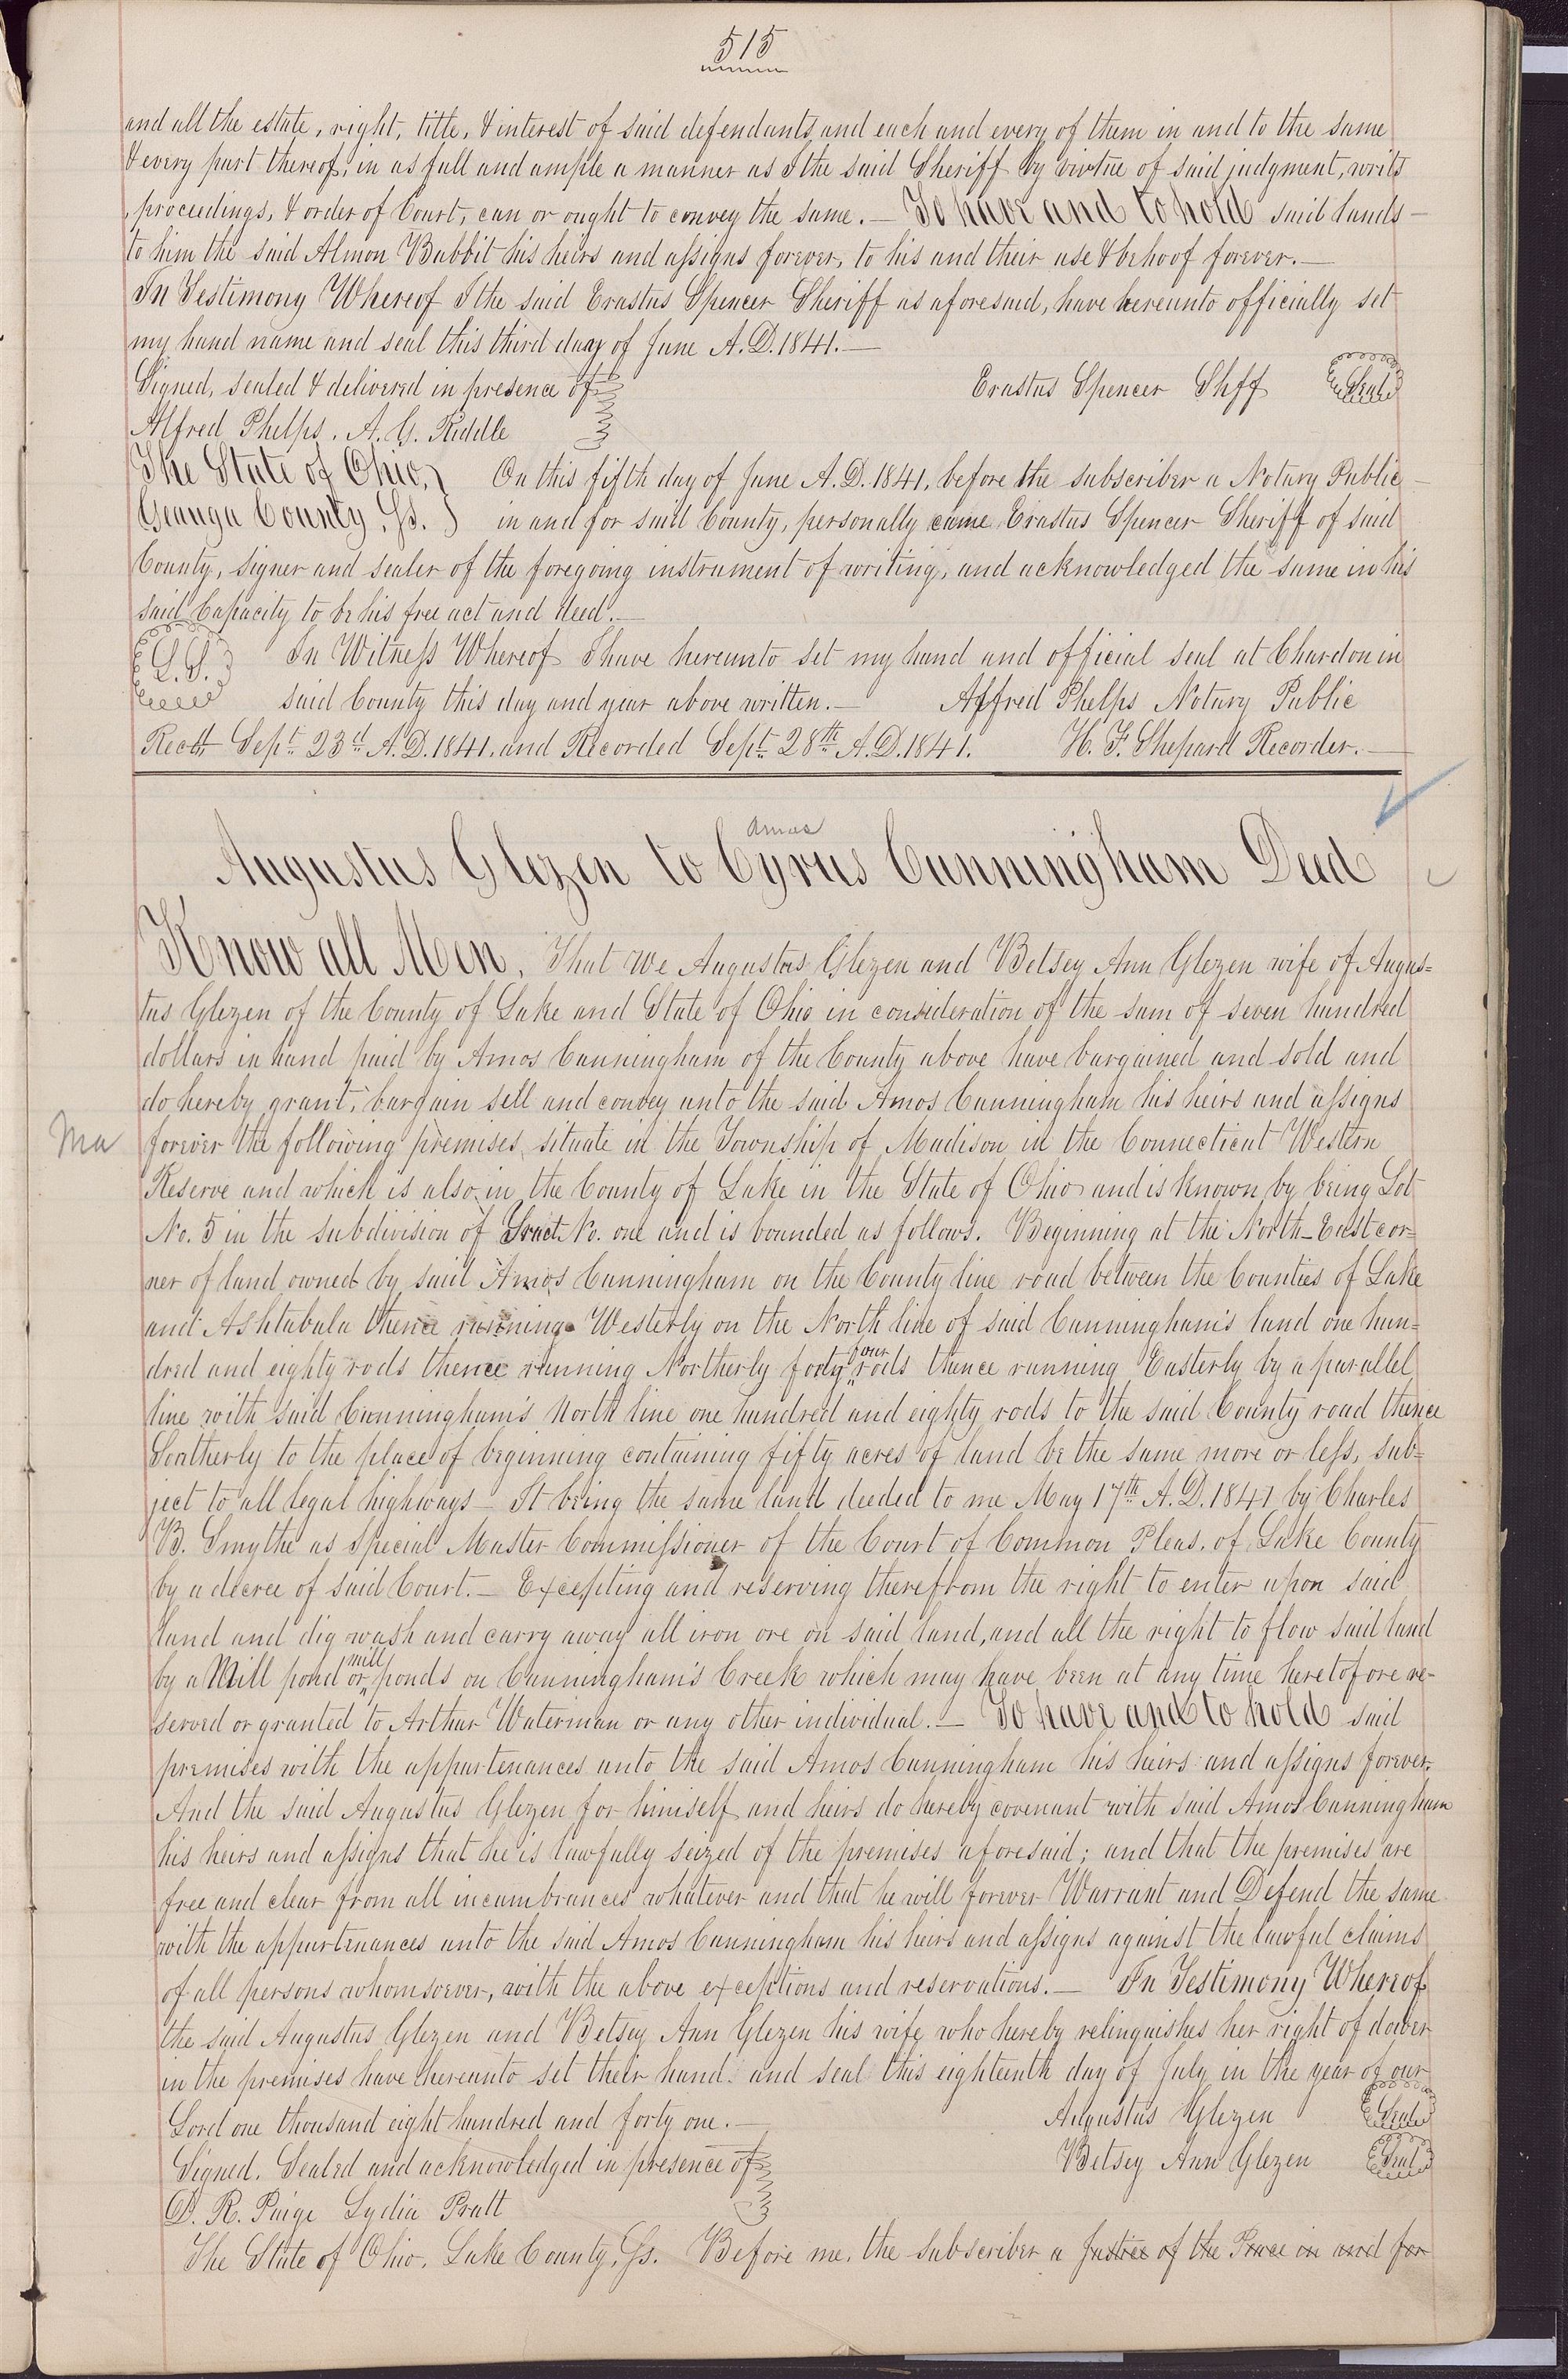 515
and all the estate, right, title, & interest of said defendants and each and every of them in and to the same
& every part thereof, in as full and ample a manner as I the said Sheriff by virtue of said judgment, writs
, proceedings, & order of Court, can or ought to convey the same.— To have and to hold said lands—
to him the said Almon Babbit his heirs and assigns forever, to his and their use & behoof forever.—
In Testimony Whereof I the said Erastus Spencer Sheriff as aforesaid, have hereunto officially set
my hand name and seal this third day of June A.D. 1841.—
Signed, sealed & delivered in presence of Erastus Spencer Shff Seal
Alfred Phelps. A. G. Riddle
The State of Ohio, On this fifth day of June A.D. 1841, before the subscriber a Notary Public—
Geauga County, Ss. in and for said County, personally came Erastus Spencer Sheriff of said
County, signer and sealer of the foregoing instrument of writing, and acknowledged the same in his
said Capacity to be his free act and deed.—
L.S. In Witness Whereof I have hereunto set my hand and official seal at Chardon in
said County this day and year above written.— Alfred Phelps Notary Public
Recd. Sept. 23d A.D. 1841. and Recorded Sept. 28th A.D. 1841. H. F. Shepard Recorder.—
Amos
Augustus Glezen to Cyrus Cunningham Deed
Know all Men, That we Augustus Glezen and Betsey Ann Glezen wife of Augus=
tus Glezen of the County of Lake and State of Ohio in consideration of the sum of seven hundred
dollars in hand paid by Amos Cunningham of the County above have bargained and sold and
do hereby grant, bargain sell and convey unto the said Amos Cunningham his heirs and assigns
Ma forever the following premises, situate in the Township of Madison in the Connecticut Western
Reserve and which is also in the County of Lake in the State of Ohio and is known by being Lot
No. 5 in the subdivision of Tract No. one and is bounded as follows. Beginning at the North-East cor=
ner of land owned by said Amos Cunningham on the County line road between the Counties of Lake
and Ashtabula thence running Westerly on the North line of said Cunningham's land one hun=
dred and eighty rods thence running Northerly forty four rods thence running Easterly by a parallel
line with said Cunningham's North line one hundred and eighty rods to the said County road thence
Southerly to the place of beginning containing fifty acres of land be the same more or less, sub=
ject to all legal highways— It being the same land deeded to me May 17th A.D. 1841 by Charles
B. Smythe as special Master Commissioner of the Court of Common Pleas, of Lake County
by a decree of said Court.— Excepting and reserving therefrom the right to enter upon said
land and dig wash and carry away all iron ore on said land, and all the right to flow said land
by a Mill pond or mill ponds on Cunningham's Creek which may have been at any time heretofore re-
served or granted to Arthur Waterman or any other individual.— To have and to hold said
premises with the appurtenances unto the said Amos Cunningham his heirs and assigns forever.
And the said Augustus Glezen for himself and heirs do hereby covenant with said Amos Cunningham
his heirs and assigns that he is lawfully seized of the premises aforesaid; and that the premises are
free and clear from all incumbrances whatever and that he will forever Warrant and Defend the same
with the appurtenances unto the said Amos Cunningham his heirs and assigns against the lawful claims
of all persons whomsoever, with the above exceptions and reservations.— In Testimony Whereof
the said Augustus Glezen and Betsey Ann Glezen his wife who hereby relinquishes her right of dower
in the premises have hereunto set their hand. and seal this eighteenth day of July in the year of our
Lord one thousand eight hundred and forty one.— Augustus Glezen Seal
Signed, Sealed and acknowledged in presence of Betsey Ann Glezen Seal
D. R. Paige Lydia Pratt
The State of Ohio, Lake County, Ss. Before me, the subscriber a Justice of the Peace in and for